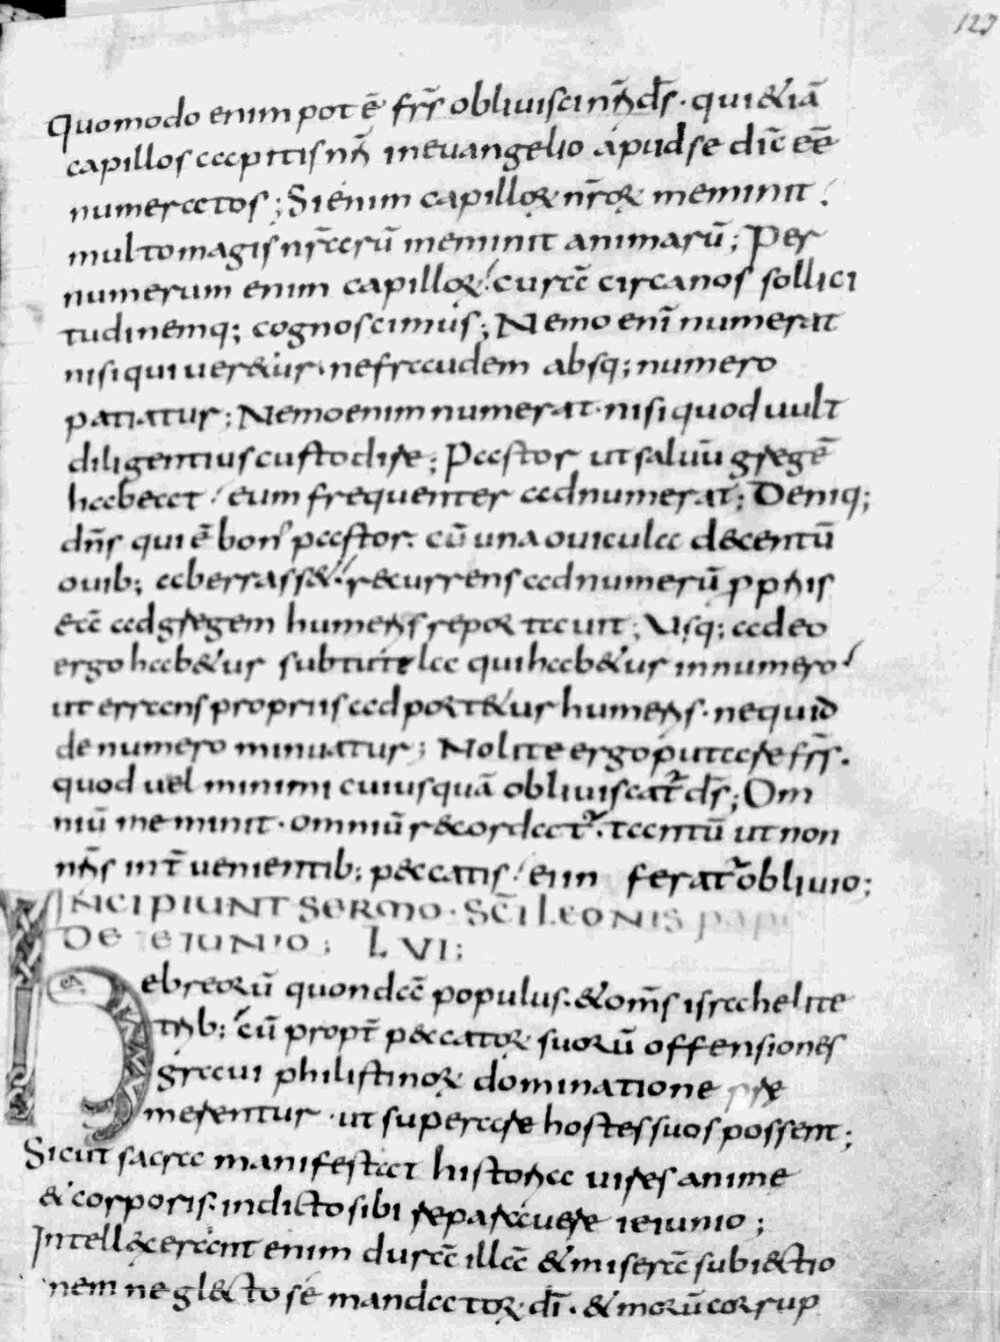 127
Quomodo enim pot ē frs̄ obliuisci nr̄i ds̄· qui &iā
capillos capitis nr̄i in euangelio apud se dic̄ eē̄
numeratos; Si enim capilloꝝ nr̄oꝝ meminit
multo magis nr̄arū meminit animarū; Per
numerum enim capilloꝝ curā circa nos sollici
tudinemq; cognoscimus; Nemo eni̅ numerat
nisi qui uer&ur· ne fraudem absq; numero
patiatur; Nemo enim numerat· nisi quod uult
diligentius custodire; Pastor ut saluū gregē
habeat eum frequenter adnumerat; Deniq;
dn̄s qui ē bon' pastor· cū una ouicula de centū
ouib; aberrass&· recurrens ad numerū ꝓpriis
eā ad gregem humeris reportauit; Usq; adeo
ergo hab&ur sub tutela qui hab&ur in numero
ut errans propriis adport&ur humeris· ne quid
de numero minuatur; Nolite ergo putare frs̄·
quod uel minimi cuiusquā obliuiscat̄ ds̄; Om
niū meminit· omniū recordat̄· tantū ut non
nr̄is int̄uenientib; peccatis ei in ferat̄ obliuio;
INCIPIUNT SERMO· SC̄I LEONIS pap
DE IEIUNIO; LVI;
Hebreorū quondā populus· &om̄s israhelite
trib; cū propt̄ peccatoꝝ suorū offensiones
graui philistinoꝝ dominatione pre
merentur· ut superare hostes suos possent;
Sicut sacra manifestat historia uires anime
& corporis· indicto sibi reparauere ieiunio;
Intellexerant enim durā illā & miserā subiectio
nem neglecto sé mandatoꝝ dī· & morū corrup